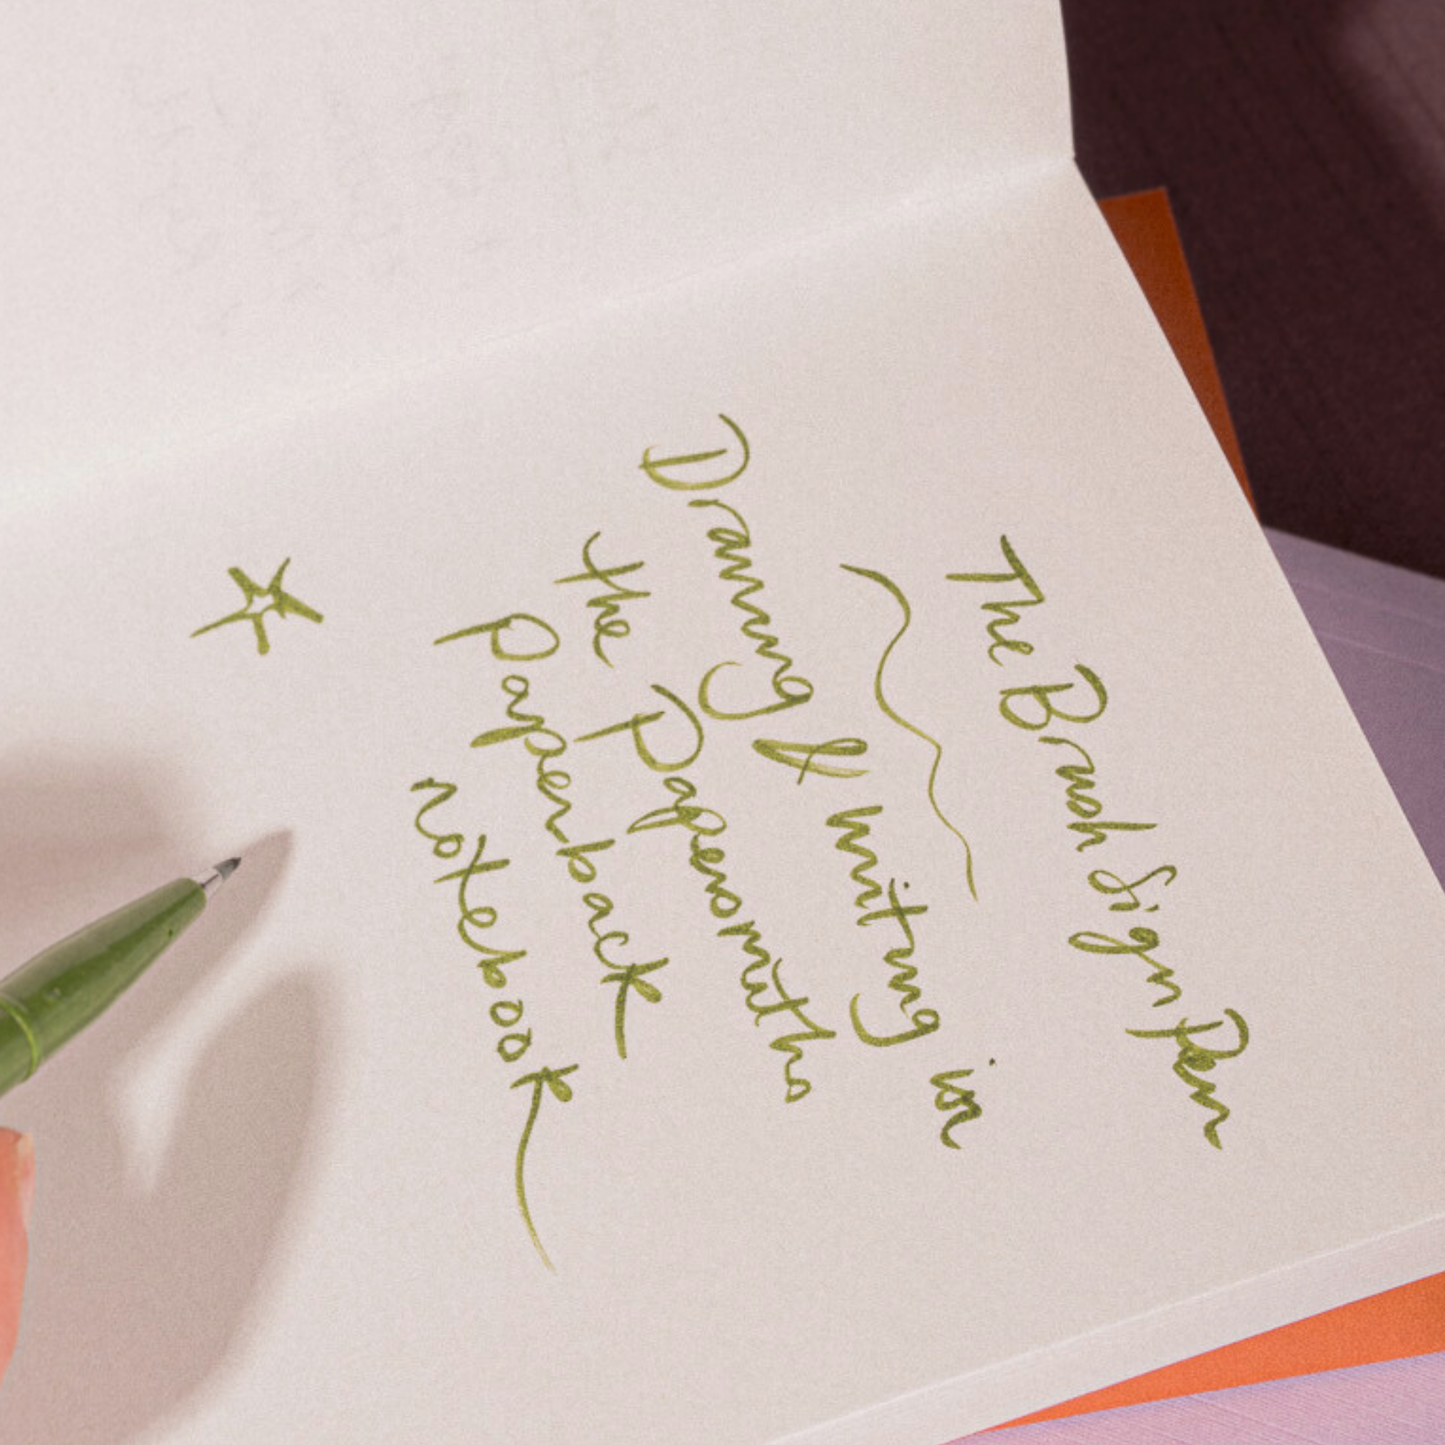 The Brush Sign Pen
Drawing & writing in
the Papersmiths
Paperback
notebook